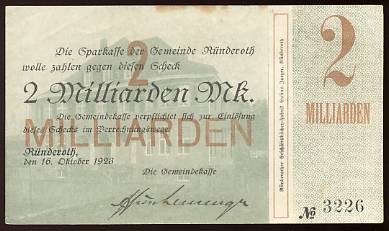 Die Sparkasse der Gemeinde Ründeroth
wolle zahlen gegen diesen Scheck
2
2 Milliarden Mk.
Die Gemeindekasse verpflichtet sich zur Einlösung
dieses Schecks im Verrechnungswege
MILLIARDEN
Ründeroth,
den 16. Oktober 1923
Die Gemeindekasse
2
MILLIARDEN
№ 3226